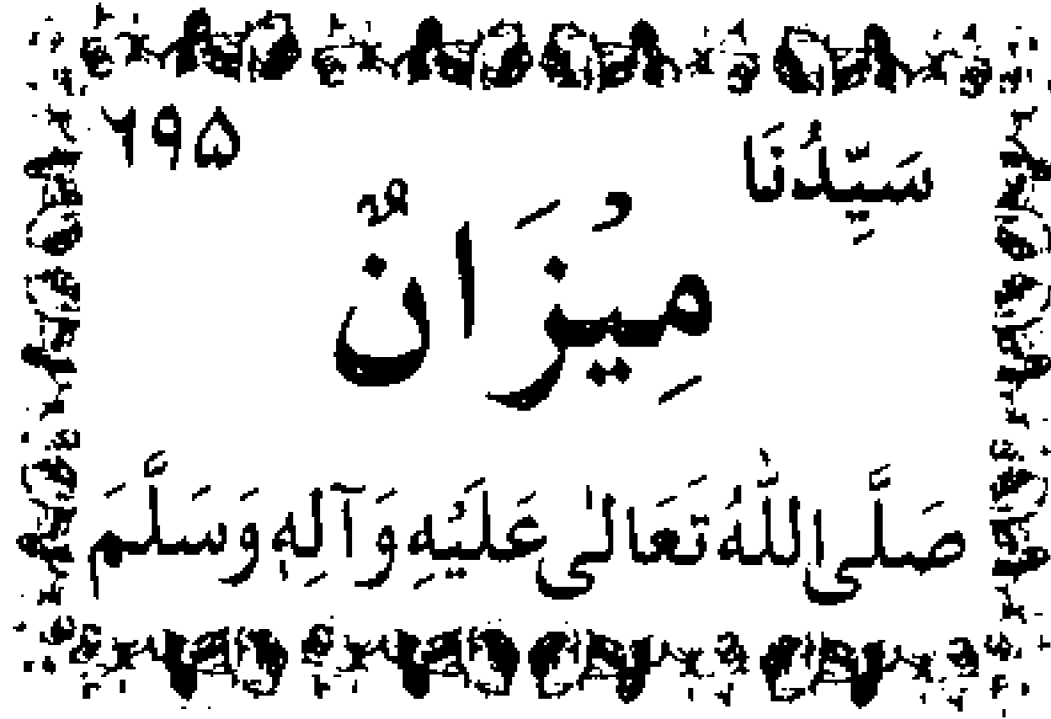 سَيِّدُنَا ٦٩۵
مِيْزَانٌ
صَلَّى اللّٰهُ تَعَالٰى عَلَيْهِ وَآلِهٖ وَسَلَّمَ